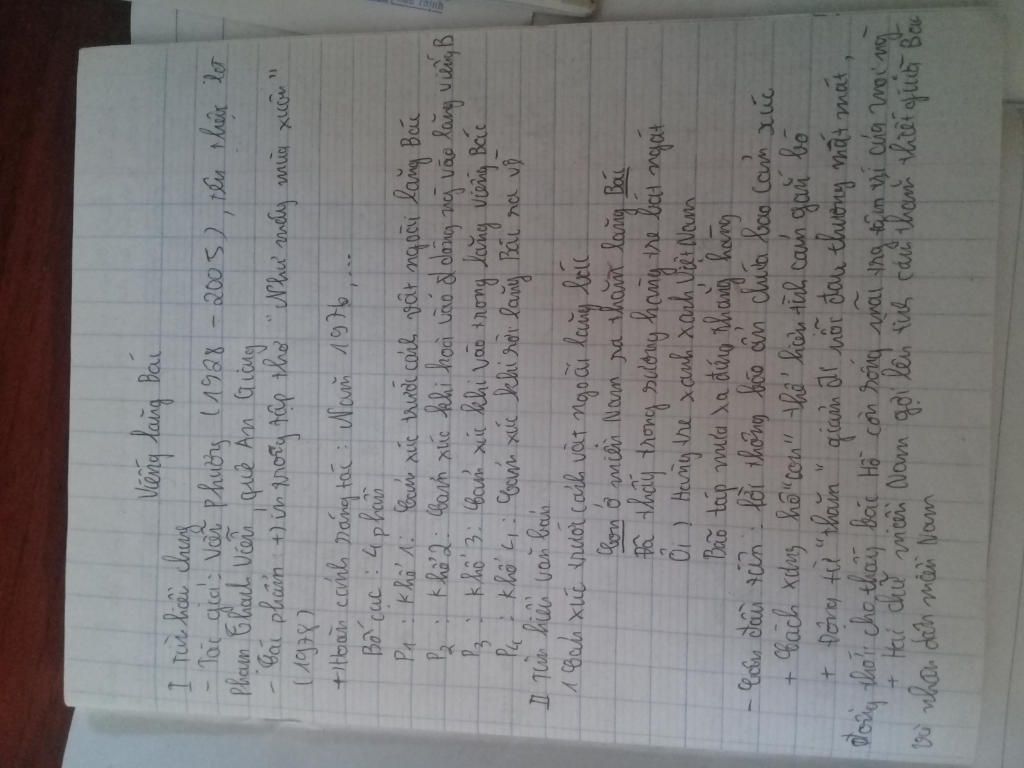 Viếng lăng Bác
I Tìm hiểu chung
- Tác giả: Viễn Phương (1928 - 2005), tên thật là
Phan Thanh Viễn, quê An Giang
- Tác phẩm: +) in trong tập thơ "Như mây mùa xuân"
(1978)
+ Hoàn cảnh sáng tác: Năm 1976,...
Bố cục: 4 phần
P1: khổ 1: Cảm xúc trước cảnh vật ngoài lăng Bác
P2: khổ 2: Cảm xúc khi hoà vào dòng ng vào lăng viếng B
P3: khổ 3: Cảm xúc khi vào trong lăng viếng Bác
P4: khổ 4: Cảm xúc khi rời lăng Bác ra về
II Tìm hiểu văn bản
1 Cảm xúc trước cảnh vật ngoài lăng Bác
Con ở miền Nam ra thăm lăng Bác
Đã thấy trong sương hàng tre bát ngát
Ôi! Hàng tre xanh xanh Việt Nam
Bão táp mưa sa đứng thẳng hàng
- Câu đầu tiên: lời thông báo ẩn chứa bao cảm xúc
+ Cách xưng hô "con" thể hiện tình cảm gần gũi
+ Động từ "thăm" giảm đi nỗi đau thương mất mát,
đồng thời cho thấy Bác Hồ còn sống mãi trg tâm trí của mọi ng
+ Hai chữ miền Nam gợi lên tình cảm thân thiết giữa Bác
với nhân dân miền Nam